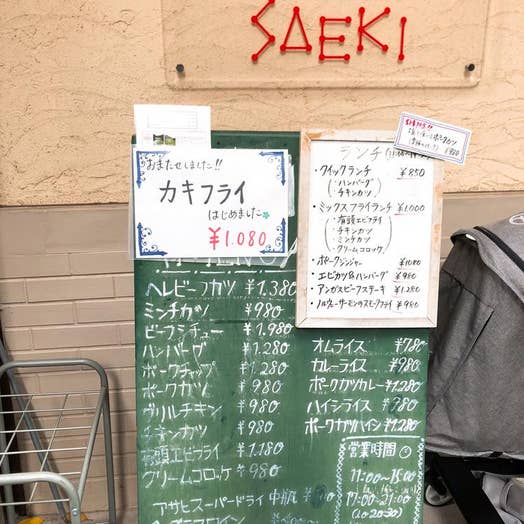 SAEKI
おまたせしました!!
カキフライ
はじめました
¥1.080
ランチ
・クイックランチ ¥850
ハンバーグ
チキンカツ
・ミックスフライランチ ¥1,000
有頭エビフライ
チキンカツ
ミンチカツ
クリームコロッケ
・ポークジンジャー ¥1080
・エビカツ&ハンバーグ ¥980
・アンガスビーフステーキ ¥1,280
・ノルウェーサーモンのスモークフライ ¥980
ヘレビーフカツ ¥1,380
ミンチカツ ¥980
ビーフシチュー ¥1,980
ハンバーグ ¥1,280
ポークチャップ ¥1,280
ポークカツ ¥980
グリルチキン ¥980
チキンカツ ¥980
有頭エビフライ ¥1,180
クリームコロッケ ¥980
アサヒスーパードライ 中瓶
オムライス ¥980
カレーライス ¥980
ポークカツカレー ¥1,280
ハイシライス ¥980
ポークカツハイシ ¥1,280
営業時間
11:00~15:00
17:00~21:00
(Lo 20:30)